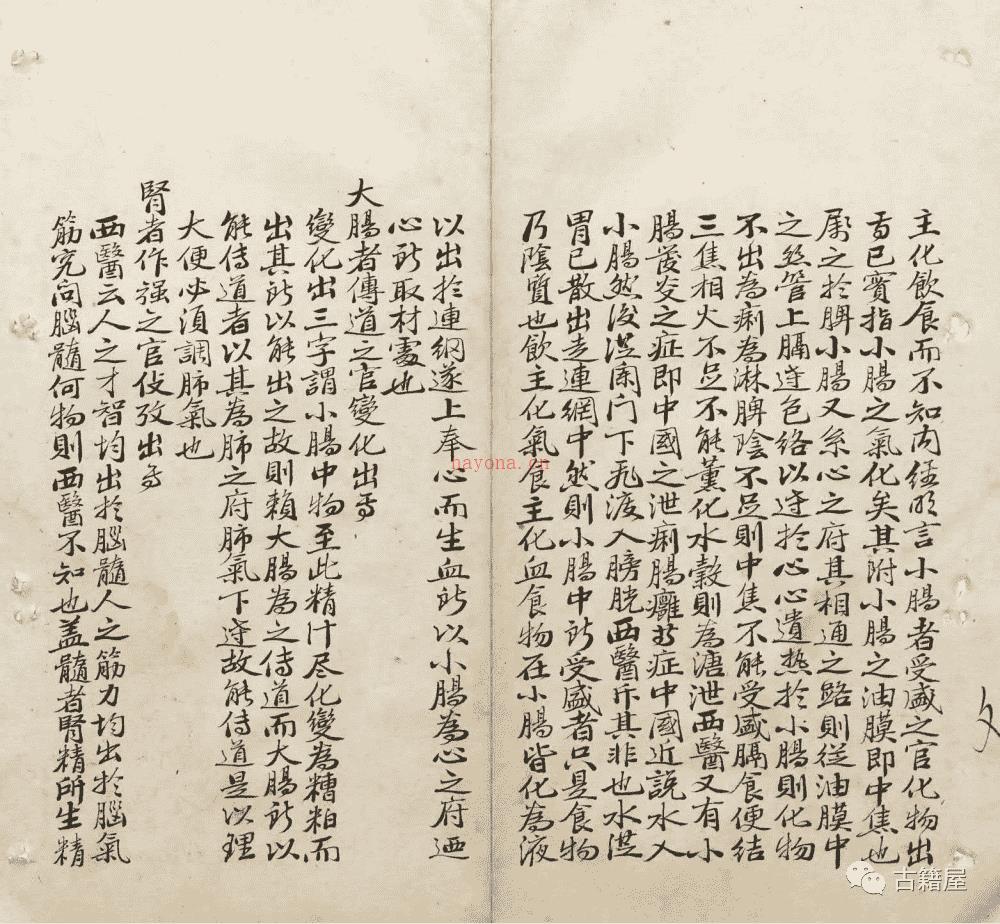 主化飲食而不知内经明言小腸者受盛之官化物出
焉已實指小腸之氣化矣其附小腸之油膜即中焦也
属之於脾小腸又系心之府其相通之路則従油膜中
之丝管上膈达包络以达於心心遺热於小腸則化物
不出為痢為淋脾陰不足則中焦不能受盛膈食便结
三焦相火不足不能薰化水穀則為溏泄西醫又有小
腸發炎之症即中國之泄痢腸癰等症中國近説水入
小腸然後従阑门下飛渡入膀胱西醫斥其非也水従
胃已散出走連網中然則小腸中所受盛者只是食物
乃陰質也飲主化氣食主化血食物在小腸皆化為液
以出於連網遂上奉心而生血所以小腸為心之府廼
心所取材處也
大腸者傳道之官變化出焉
變化出三字謂小腸中物至此精汁尽化變為糟粕而
出其所以能出之故則賴大腸為之傳道而大腸所以
能传道者以其為肺之府肺氣下达故能传道是以理
大便必須調肺氣也
腎者作强之官伎巧出焉
西醫云人之才智均出於腦髓人之筋力均出於腦氣
筋究问腦髓何物則西醫不知也盖髓者腎精所生精
nayona.cn
古籍屋